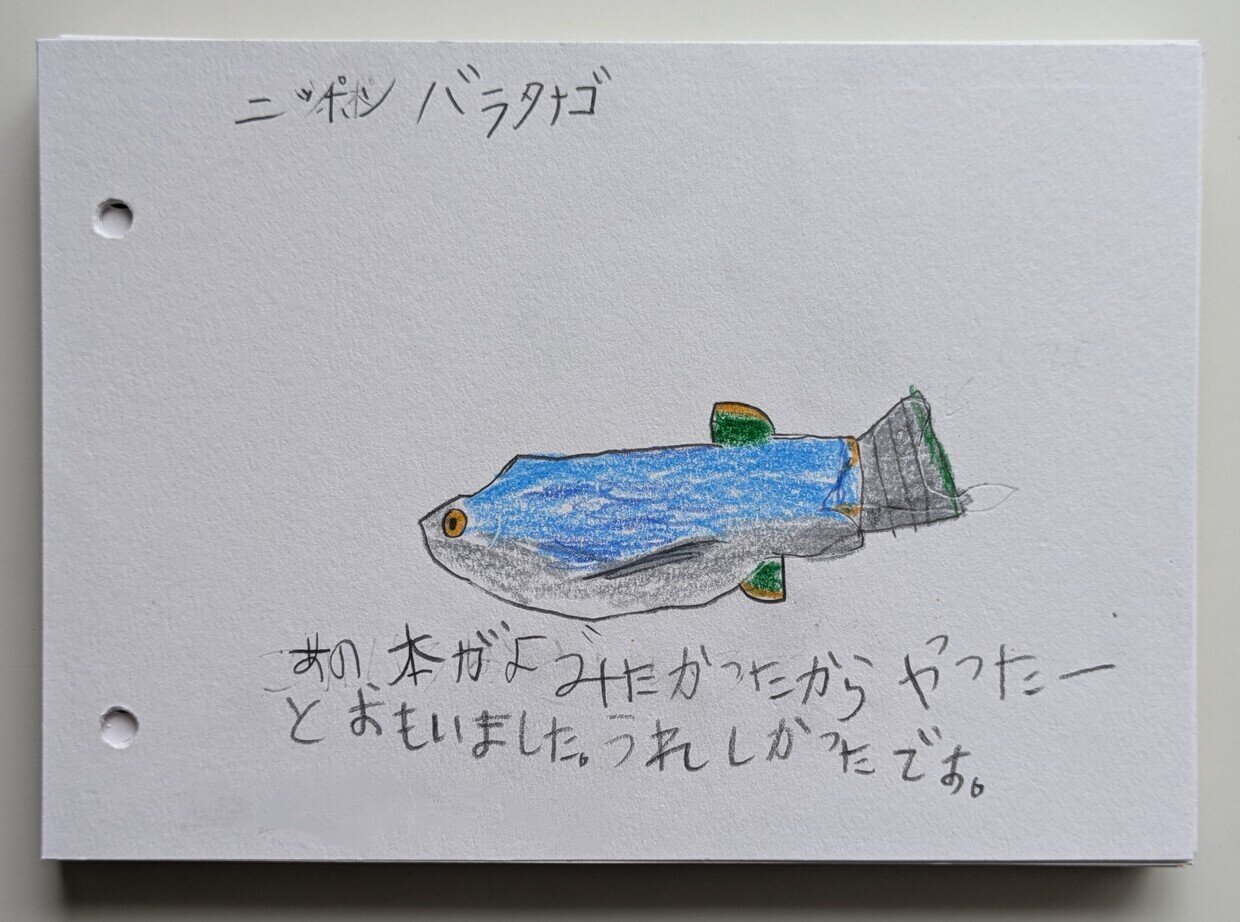 ニッポン バラタナゴ
あの本がよみたかったからやったー
とおもいました。うれしかったです。